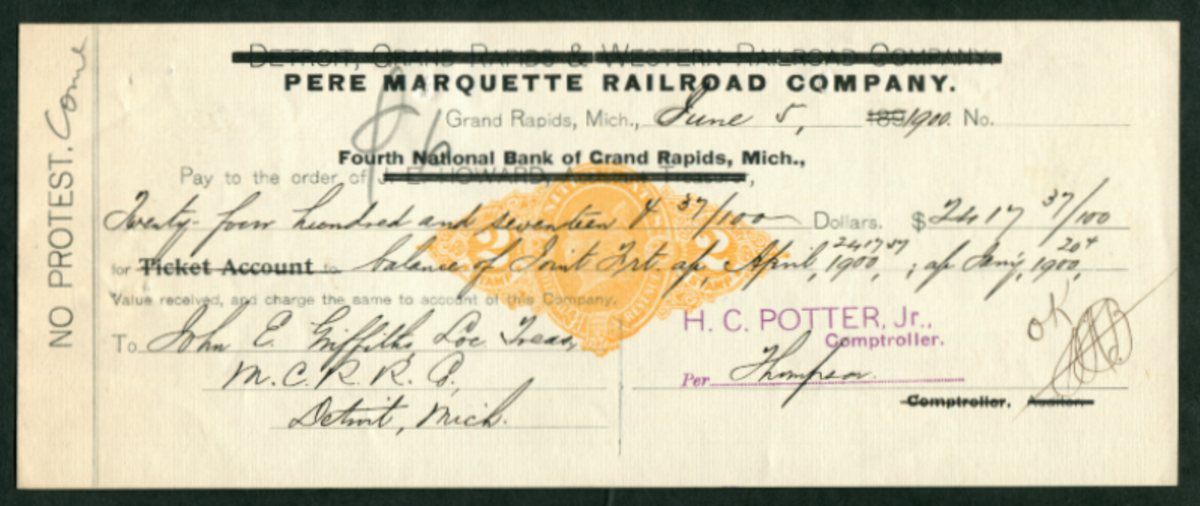 DETROIT, GRAND RAPIDS & WESTERN RAILROAD COMPANY.
PERE MARQUETTE RAILROAD COMPANY.
Grand Rapids, Mich., June 5, 189 1900. No.
Fourth National Bank of Grand Rapids, Mich.,
Pay to the order of J. E. HOWARD,
Twenty-four hundred and seventeen & 37/100 Dollars. $2417 37/100
for Ticket Account to balance of Joint Frt. a/c April, 1900, 2417 37; a/c Jan'y, 1900, 20¢
Value received, and charge the same to account of this Company.
To John E. Griffiths Loc Treas,
M.C.R.R. Co,
Detroit, Mich.
H. C. POTTER, Jr.,
Comptroller.
Per Thompson.
Comptroller. Auditor.
OK
NO PROTEST.
2 2